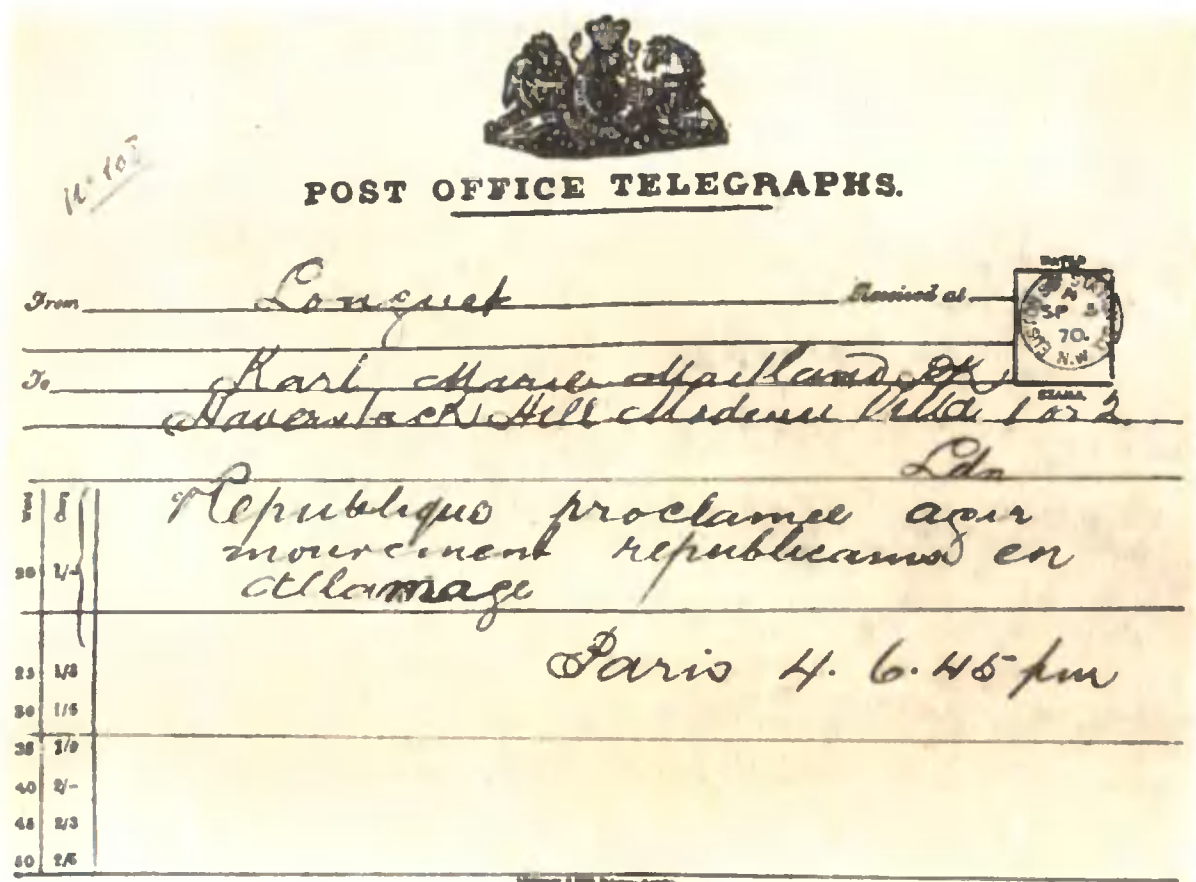 N° 105
POST OFFICE TELEGRAPHS.
From Longuet Received at
SP 5
70.
N.W
To Karl Marie Maitland PK
Haverstack Hill Modena Villa 1 or 2
Ldn
Republique proclamee agir
mourement republicana en
Allamage
20
Paris 4. 6.45 pm
25 1/3
30 1/6
35 1/9
40 2/-
45 2/3
50 2/6